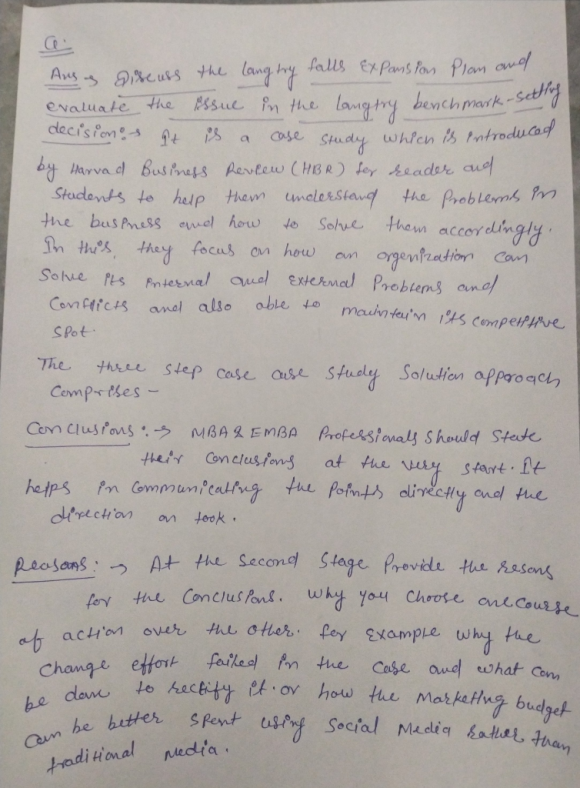 Q.
Ans → Discuss the langtry falls Expansion Plan and
evaluate the issue in the langtry benchmark-setting
decision :→ It is a case study which is introduced
by Harvad Business Review (HBR) for reader and
Students to help them understand the Problems in
the business and how to Solve them accordingly.
In this, they focus on how an orgenization can
Solve its internal and External Problems and
Conflicts and also able to maintain its competitive
spot.
The three step case case Study Solution approach
Comprises -
Conclusions :→ MBA & EMBA Professionals Should State
their Conclusions at the very start. It
helps in Communicating the Points directly and the
direction on took.
Reasons : → At the Second Stage Provide the resons
for the Conclusions. Why you choose one course
of action over the other. for Example why the
Change effort failed in the case and what can
be done to rectify it. or how the Marketing budget
can be better spent using Social Media rather than
traditional Media.